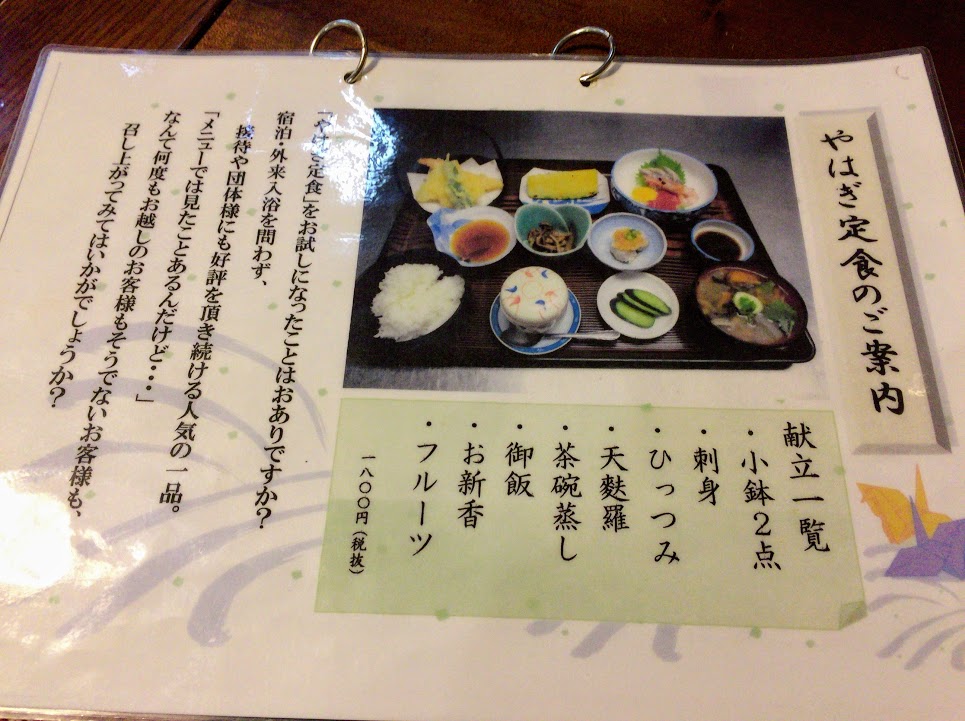 やはぎ定食のご案内
献立一覧
・小鉢２点
・刺身
・ひっつみ
・天麩羅
・茶碗蒸し
・御飯
・お新香
・フルーツ
一八〇〇円（税抜）
「やはぎ定食」をお試しになったことはおありですか？
宿泊・外来入浴を問わず、
接待や団体様にも好評を頂き続ける人気の一品。
「メニューでは見たことあるんだけど・・・」
なんて何度もお越しのお客様もそうでないお客様も、
召し上がってみてはいかがでしょうか？